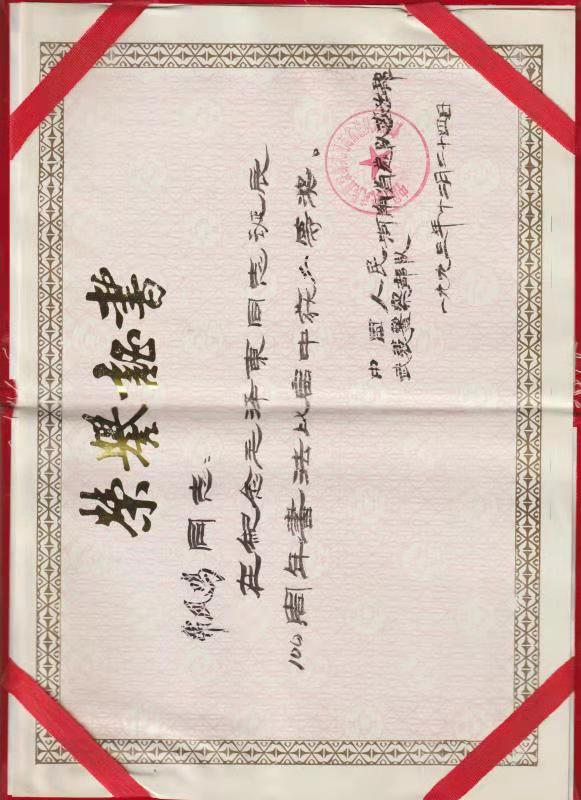 荣誉證書
同志:
在纪念毛泽东同志诞辰
100周年書法比賽中获等奖。
中国人民
武装警察部队
河南省总队政治部
一九九三年十二月二十四日